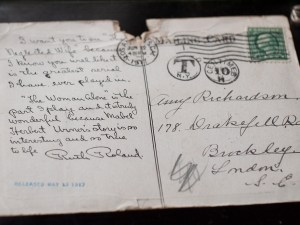 I want you to see
Neglected Wife because
I know you will like it
is the greatest serial
I have ever played in.
"The Woman Alone" the
part I play and it truly
wonderful because Mabel
Herbert Urner's story is so
interesting and so true
to life
Ruth Roland
T
N.Y.
10
H
Amy Richardson
178. Drakefell Rd
Brockley
London.
S. E.